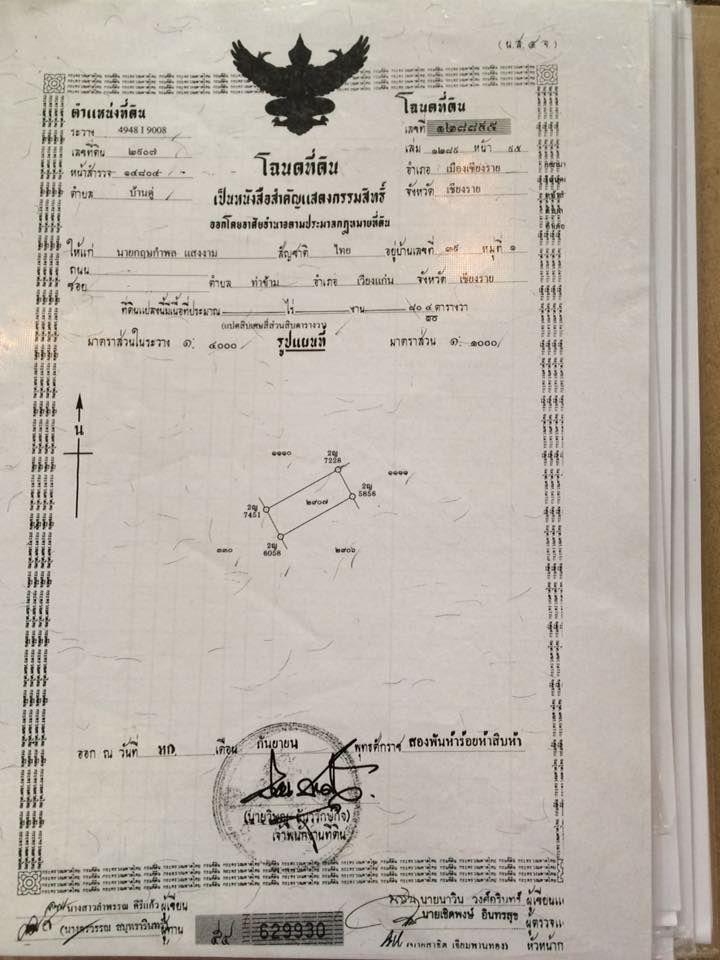 (น.ส.๔ จ.)
ตำแหน่งที่ดิน
ระวาง 4948 I 9008
เลขที่ดิน ๒๙๐๗
หน้าสำรวจ ๑๔๘๐๔
ตำบล บ้านดู่
โฉนดที่ดิน
เลขที่ ๑๒๘๘๙๕
เล่ม ๑๒๘๙ หน้า ๙๕
อำเภอ เมืองเชียงราย
จังหวัด เชียงราย
โฉนดที่ดิน
เป็นหนังสือสำคัญแสดงกรรมสิทธิ์
ออกโดยอาศัยอำนาจตามประมวลกฎหมายที่ดิน
ให้แก่ นายกฤษกำพล แสงงาม สัญชาติ ไทย อยู่บ้านเลขที่ ๓๙ หมู่ที่ ๑
ถนน
ซอย ตำบล ท่าข้าม อำเภอ เวียงแก่น จังหวัด เชียงราย
ที่ดินแปลงนี้มีเนื้อที่ประมาณ ไร่ งาน ๘๐ ๔ ตารางวา
๑๐
(แปดสิบเศษสี่ส่วนสิบตารางวา)
มาตราส่วนในระวาง ๑: ๔๐๐๐ รูปแผนที่ มาตราส่วน ๑: ๑๐๐๐
น
๑๑๑๐
2ญ
7228
2ญ
5856
๑๑๑๑
๒๙๐๗
2ญ
7451
2ญ
6058
๓๓๐
๒๙๐๖
ออก ณ วันที่ หก เดือน กันยายน พุทธศักราช สองพันห้าร้อยห้าสิบห้า
เจ้าพนักงานที่ดิน
ผู้เขียน
ผู้ทาน
629930
นายนาวิน
นายเชิดพงษ์ อินทรสุข